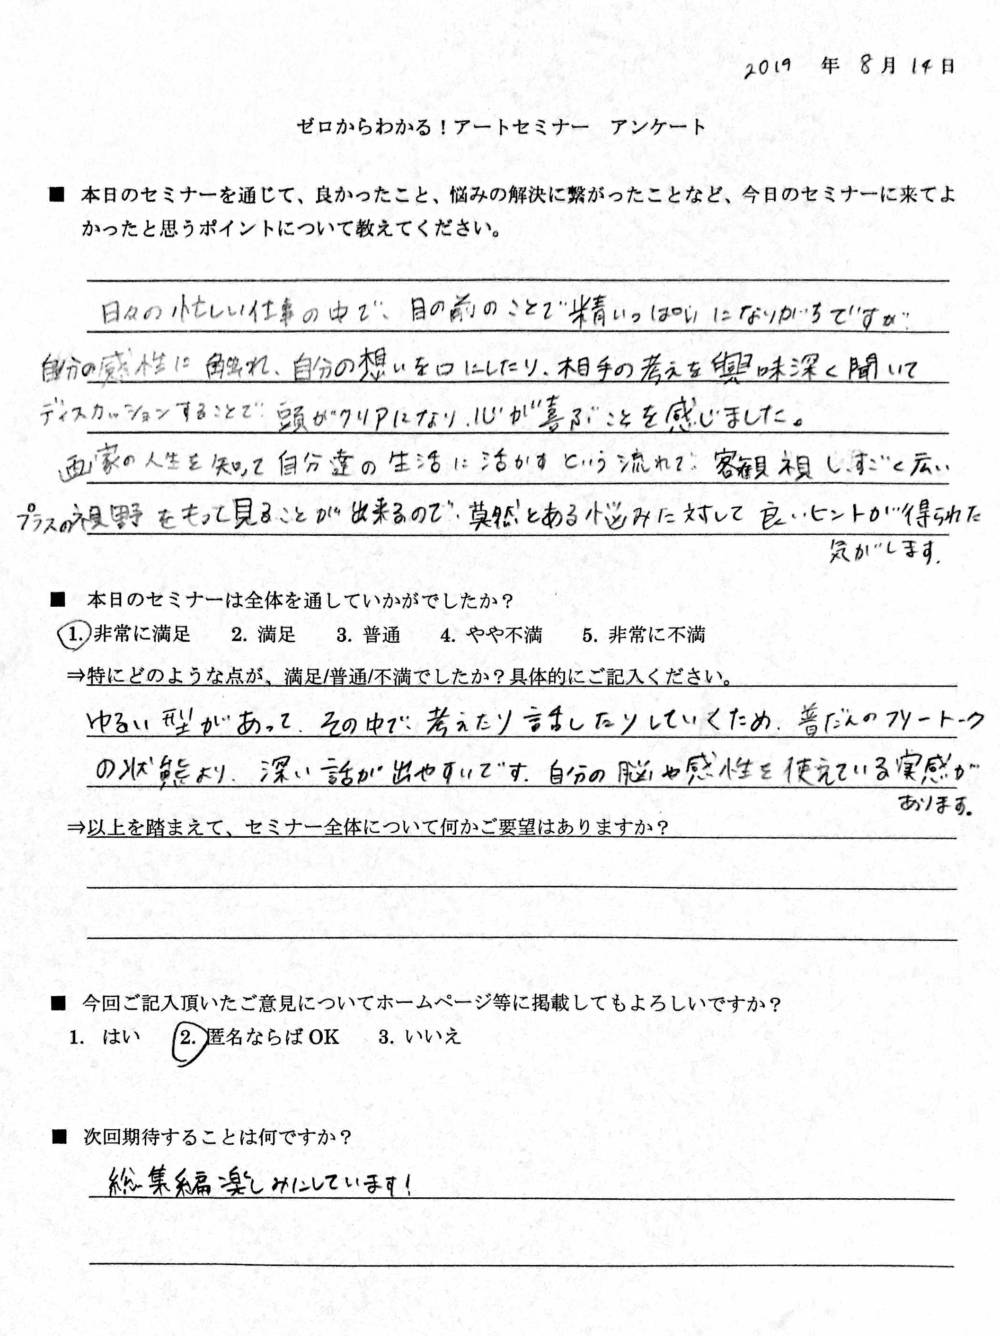 2019 年 8月 14日
ゼロからわかる！アートセミナー　アンケート
■ 本日のセミナーを通じて、良かったこと、悩みの解決に繋がったことなど、今日のセミナーに来てよ
かったと思うポイントについて教えてください。
日々の忙しい仕事の中で、目の前のことで精いっぱいになりがちですが
自分の感性に触れ、自分の想いを口にしたり、相手の考えを興味深く聞いて
ディスカッションすることで、頭がクリアになり、心が喜ぶことを感じました。
画家の人生を知って自分達の生活に活かすという流れで、客観視し、すごく広い
プラスの視野をもって見ることが出来るので、漠然とある悩みに対して良いヒントが得られた
気がします。
■ 本日のセミナーは全体を通していかがでしたか？
1. 非常に満足　2. 満足　3. 普通　4. やや不満　5. 非常に不満
⇒特にどのような点が、満足/普通/不満でしたか？具体的にご記入ください。
ゆるい型があって、その中で、考えたり話したりしていくため、普だんのフリートーク
の状態より、深い話が出やすいです。自分の脳や感性を使えている実感が
あります。
⇒以上を踏まえて、セミナー全体について何かご要望はありますか？
■ 今回ご記入頂いたご意見についてホームページ等に掲載してもよろしいですか？
1. はい　2. 匿名ならば OK　3. いいえ
■ 次回期待することは何ですか？
総集編楽しみにしています！